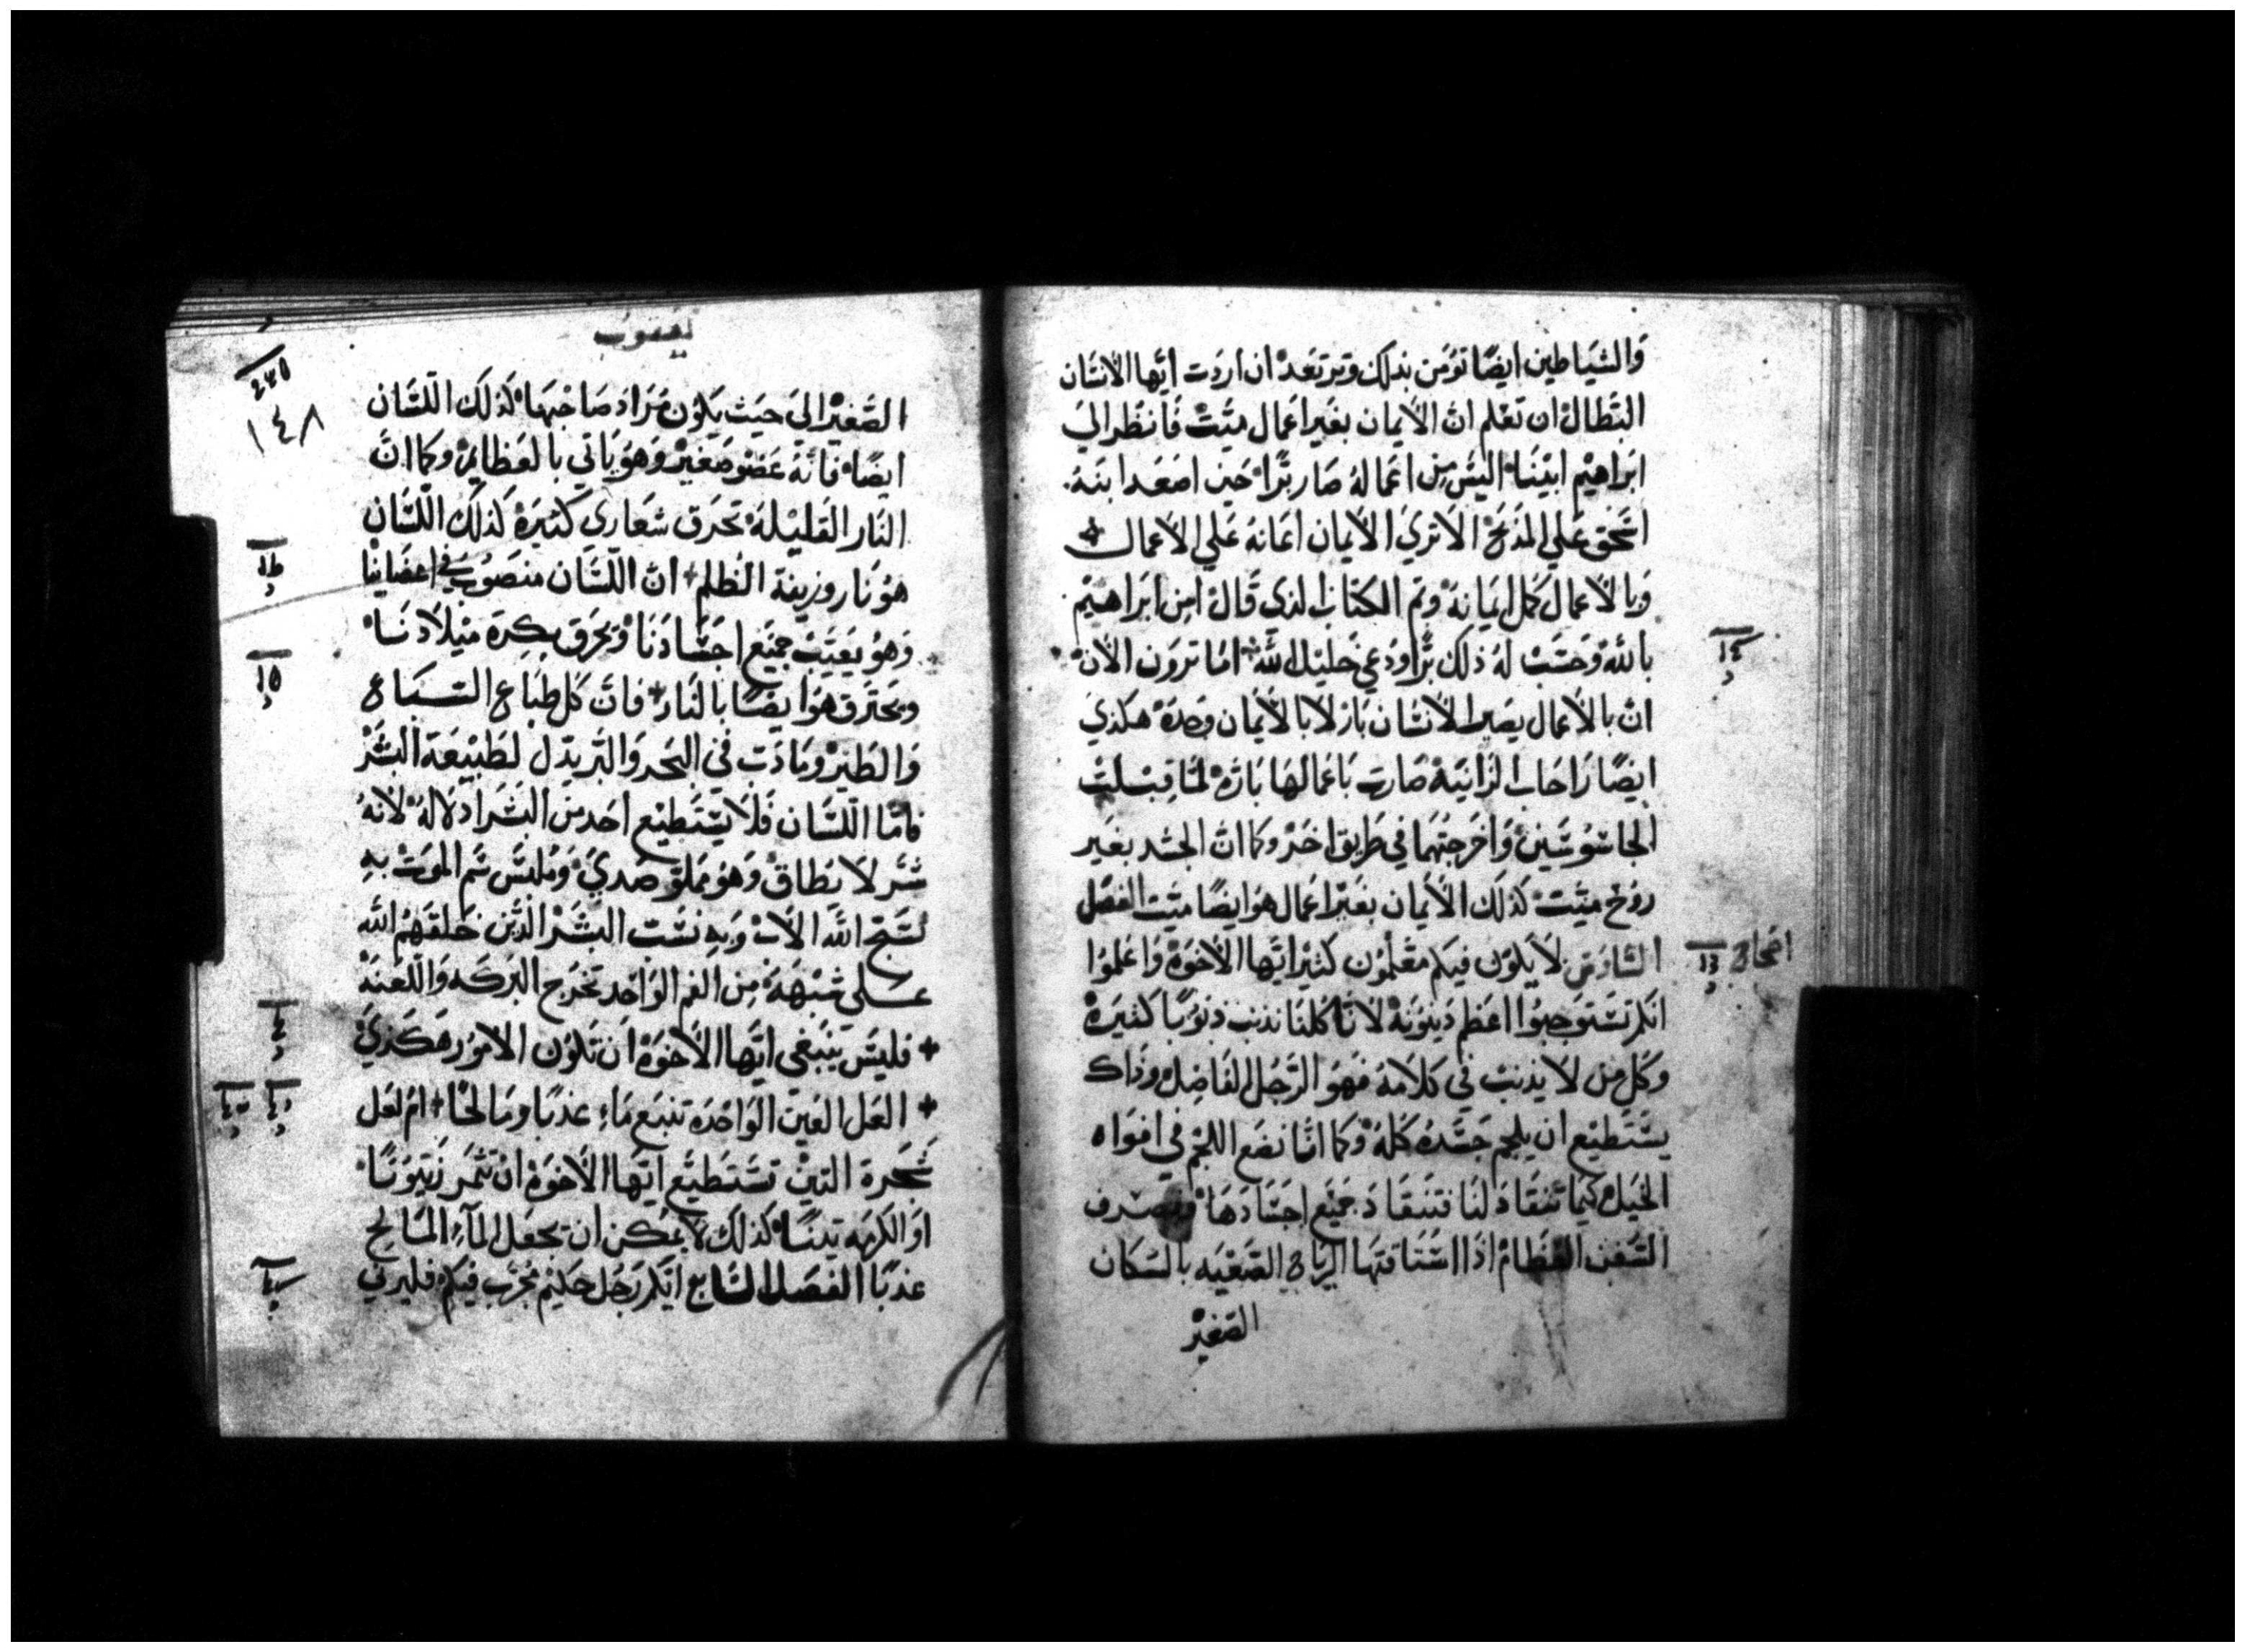 والشياطين ايضًا تؤمن بذلك وترتعد ان اردت ايها الانسان
البطال ان تعلم ان الايمان بغير اعمال ميت فانظر الي
ابراهيم ابينا اليس من اعماله صار برًا حين اصعد ابنه
اسحق علي المذبح الا تري الايمان اعانه علي الاعمال
وبالاعمال كمل ايمانه وتم الكتاب الذي قال امن ابراهيم
بالله وحسب له ذلك برًا ودعي خليل الله اما ترون الان
ان بالاعمال يصير الانسان بار لا بالايمان وحده هكذي
ايضًا راحاب الزانيه صارت باعمالها باره لما قبلت
الجاسوسين واخرجتهما في طريق اخر وكما ان الجسد بغير
روح ميت كذلك الايمان بغير اعمال هو ايضًا ميت الفصل
السادس لا يكون فيكم معلمون كثير ايها الاخوة واعلموا
انكم تستوجبوا اعظم دينونة لاننا كلنا نذنب ذنوبًا كثيرة
وكل من لا يذنب في كلامه فهو الرجل الفاضل وذاك
يستطيع ان يلجم جسده كله وكما اننا نضع اللجم في افواه
الخيل كيما تنقاد لنا فتنقاد جميع اجسادها
السفن العظام اذا استاقتها الرياح الصعبه بالسكان
الصغير
يعقوب
١٤٨
الصغير الي حيث يكون مراد صاحبها كذلك اللسان
ايضًا فانه عضو صغير وهو ياتي بالعظايم وكما ان
النار القليلة تحرق شعاري كثيرة كذلك اللسان
هو نار وزينة الظلم ان اللسان منصوب في اعضاينا
وهو يعيب جميع اجسادنا ويحرق بكرة ميلادنا
ويحترق هو ايضًا بالنار فان كل طباع السباع
والطير وما دب في البحر والبر يذل لطبيعة البشر
فاما اللسان فلا يستطيع احد من البشر اذلاله لانه
شر لا يطاق وهو مملو صدي وملبس سم الموت به
نسبح الله الاب وبه نسب البشر الذين خلقهم الله
على شبهه من الفم الواحد تخرج البركه واللعنه
فليس ينبغي ايها الاخوة ان تكون الامور هكذي
العل العين الواحدة تنبع ماء عذبًا ومالحًا ام لعل
شجرة التين تستطيع ايها الاخوة ان تثمر زيتونًا
او الكرمه تينًا كذلك لا يمكن ان يجعل المآء المالح
عذبًا الفصل السابع ايكم رجل حكيم مجرب فيكم فليرني